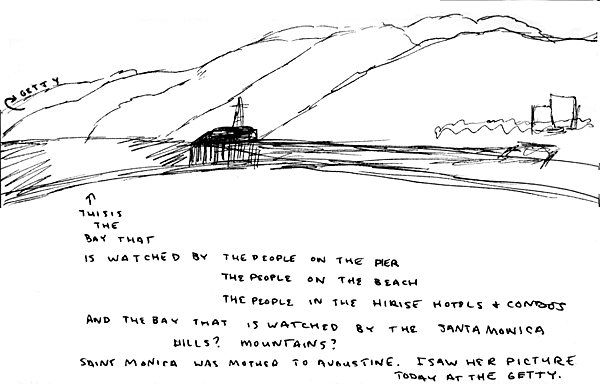 GETTY
↑
THIS IS
THE
BAY THAT
IS WATCHED BY THE PEOPLE ON THE PIER
THE PEOPLE ON THE BEACH
THE PEOPLE IN THE HIRISE HOTELS + CONDOS
AND THE BAY THAT IS WATCHED BY THE SANTA MONICA
HILLS? MOUNTAINS?
SAINT MONICA WAS MOTHER TO AUGUSTINE. I SAW HER PICTURE
TODAY AT THE GETTY.